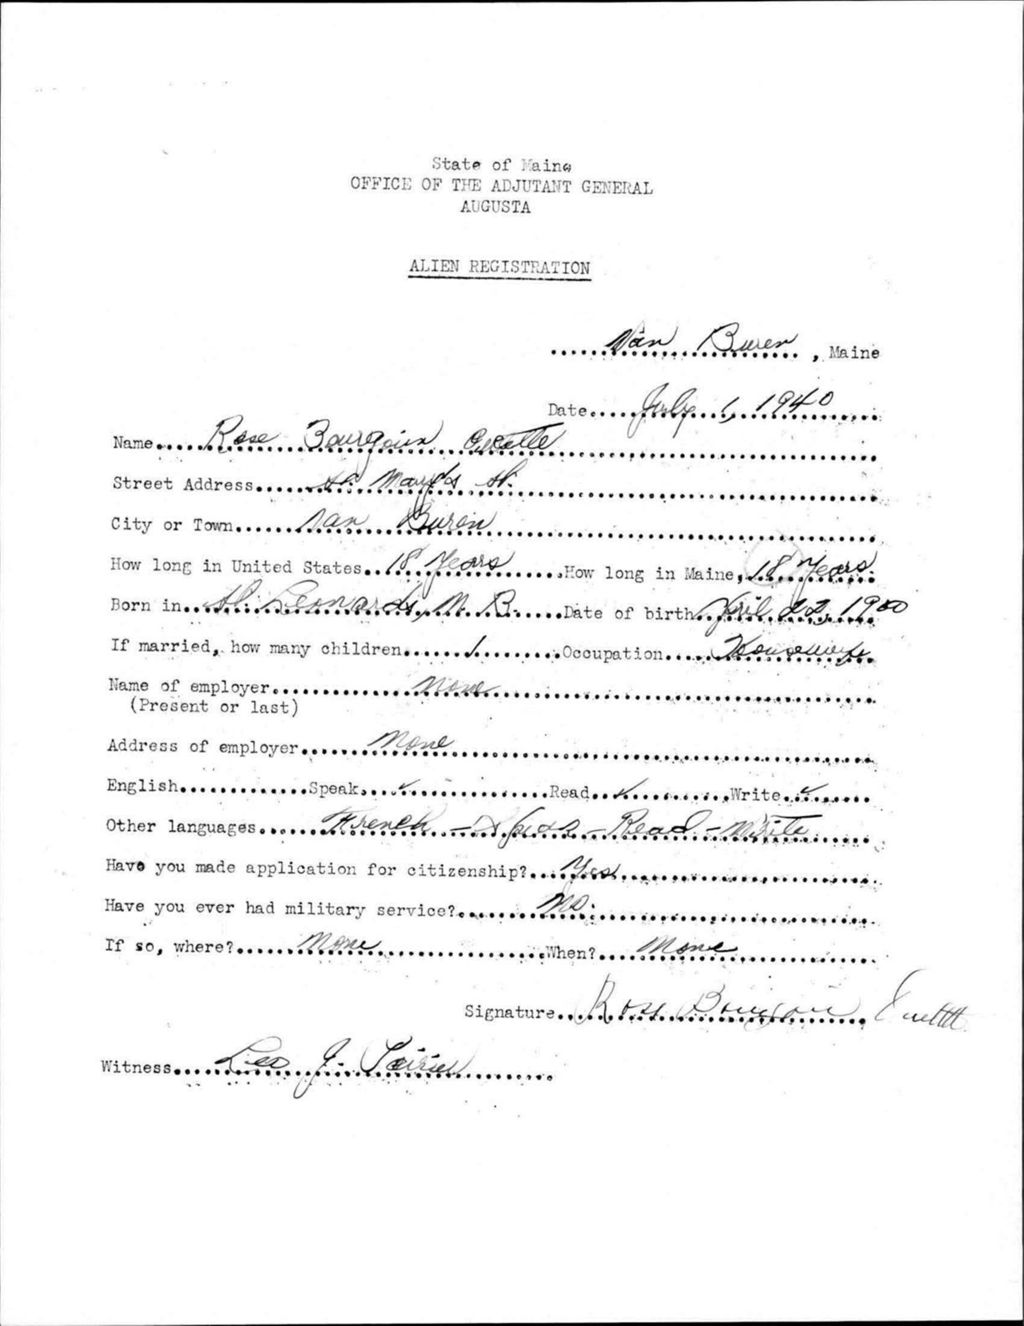 State of Maine
OFFICE OF THE ADJUTANT GENERAL
AUGUSTA
ALIEN REGISTRATION
Van Buren, Maine
Date July 1, 1940
Name Rose Bourgoin
Street Address St. Mary's St.
City or Town Van Buren
How long in United States 18 Years How long in Maine, 18 Years.
Born in St. Leonards, N. B. Date of birth April 22, 1900
If married, how many children 1 Occupation Housewife
Name of employer None
(Present or last)
Address of employer None
English Speak ✓ Read ✓ Write ✓
Other languages French - Speak - Read - Write
Have you made application for citizenship? Yes
Have you ever had military service? No.
If so, where? None When? None
Signature Rose Bourgoin
Witness Leo J.